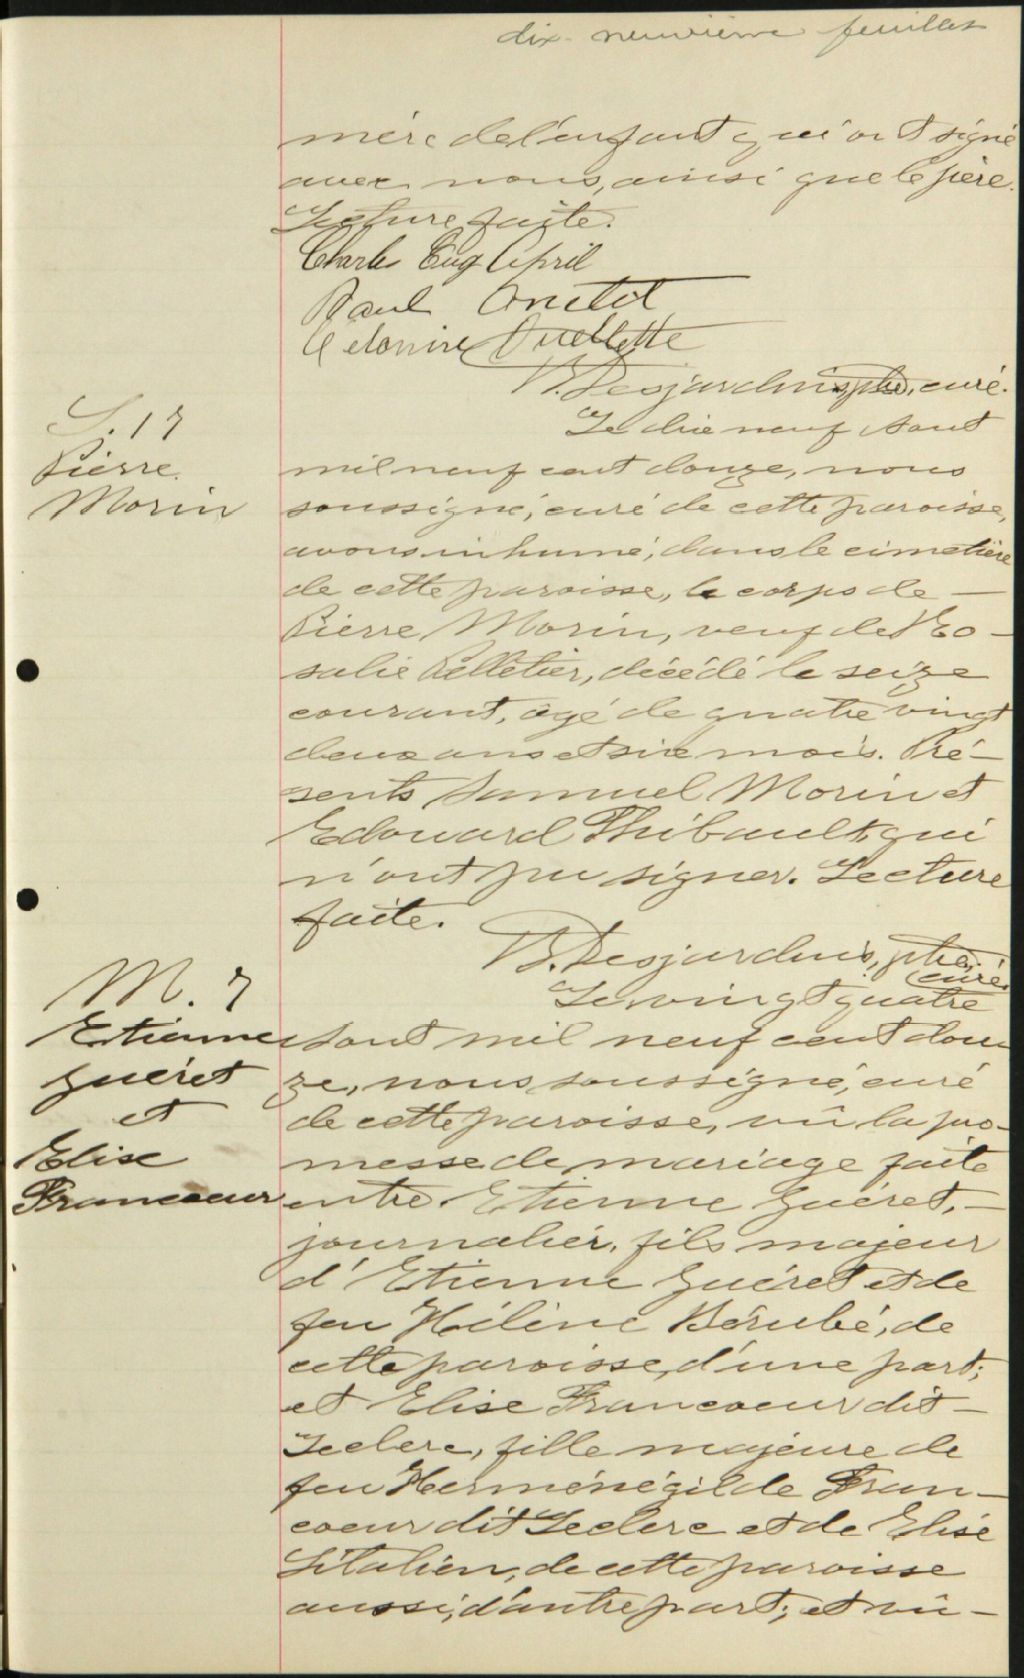 dix-neuvième feuillet
mère de l'enfant qui ont signé
avec nous, ainsi que le père.
Lecture faite.
Charles Eug April
Paul Ouellet
Ouellette
B. Desjardins, ptre, curé.
S. 17
Pierre
Morin
Le dix neuf août
mil neuf cent douze, nous
soussigné, curé de cette paroisse,
avons inhumé, dans le cimetière
de cette paroisse, le corps de —
Pierre Morin, veuf de Ro-
salie Pelletier, décédé le seize
courant, âgé de quatre vingt
deux ans et six mois. Pré-
sents Samuel Morin et
Edouard Thibault, qui
n'ont pu signer. Lecture
faite.
B. Desjardins, ptre,
curé
M. 7
Etienne
Guéret
et
Elise
Francoeur
Le vingt quatre
août mil neuf cent dou
ze, nous soussigné, curé
de cette paroisse, vû la pro-
messe de mariage faite
entre Etienne Guéret, —
journalier, fils majeur
d'Etienne Guéret et de
feu Hélène Bérubé, de
cette paroisse, d'une part;
et Elise Francoeur dit —
Leclerc, fille majeure de
feu Herménégilde Fran-
coeur dit Leclerc et de Elise
Litalien, de cette paroisse
aussi, d'autre part; et vû —